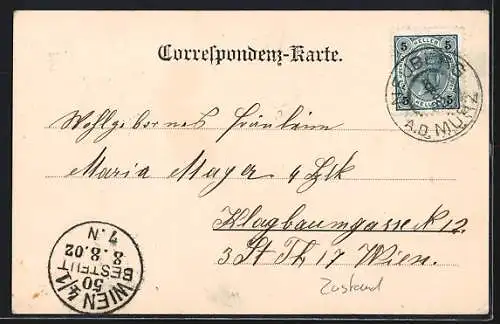 Correspondenz-Karte.
5 HELLER 5
5 HELLER 5
NEUBERG
A.D. MÜRZ
Wohlgebornes Fräulein
Maria Mayer
Klagbaumgasse N 12
3 St Th 17 Wien.
WIEN 4/1
50
BESTELLT
8.8.02
7.N
Zustand